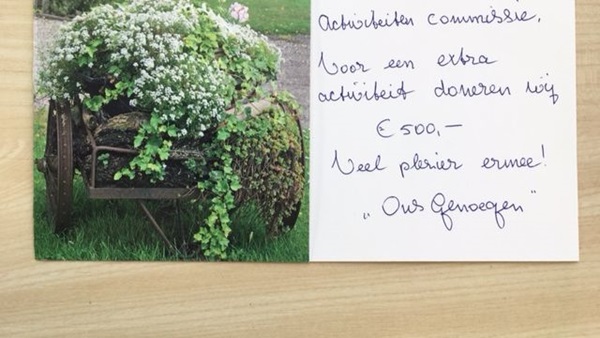 Activiteiten commissie,
Voor een extra
activiteit doneren wij
€ 500,—
Veel plezier ermee!
„ Ons Genoegen "